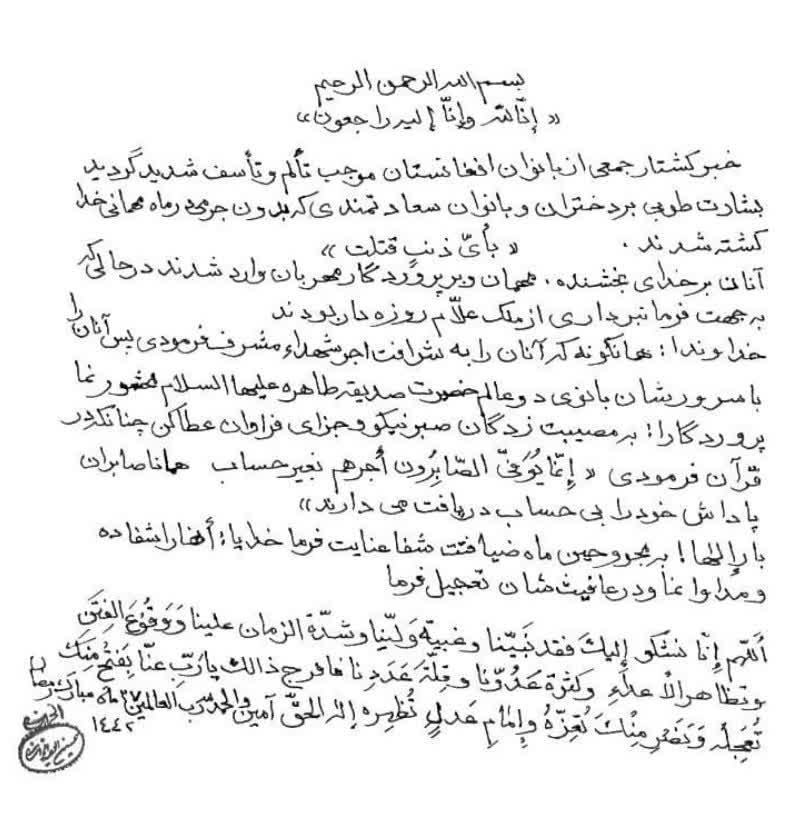 بسم الله الرحمن الرحیم
« إنّا لله وإنّا إلیه راجعون»
خبر کشتار جمعی از بانوان افغانستان موجب تألم و تأسف شدید گردید
بشارت طوبی بر دختران و بانوان سعادتمندی که بدون جرمی در ماه مهمانی خدا
کشته شدند . « بأیّ ذنبٍ قتلت »
آنان بر خدای بخشنده ، مهمان و بر پروردگار مهربان وارد شدند در حالی که
به جهت فرمانبرداری از ملک علّام روزه دار بودند
خداوندا ! همانگونه که آنان را به شرافت اجر شهداء مشرف فرمودی پس آنان را
با سرورشان بانوی دو عالم حضرت صدیقه طاهره علیها السلام محشور نما
پروردگارا ! به مصیبت زدگان صبر نیکو و جزای فراوان عطا کن چنانکه در
قرآن فرمودی « إنّما یُوَفیّ الصّابِرُون أجرهم بغیر حساب همانا صابران
پاداش خود را بی حساب دریافت می دارند»
بار إلها ! به مجروحین ماه ضیافتت شفا عنایت فرما خدایا ! آنها را شفا ده
و مداوا نما و در عافیتشان تعجیل فرما
أللّهم إنّا نشکو إلیكَ فقد نَبیّنا و غیبة وَلیّنا و شدّة الزمان علینا وَ وَقُوعَ الفِتَن
و تظاهر الأعداءِ وکثرة عَدُوّنا و قِلّة عَدَدِنا فافرج ذالك یارَبِّ عنّا بِفَتْحٍ مِنكَ
تُعَجِلُه وَ نَصْرٍ مِنْكَ تُعِزّهُ وَ إمامِ عَدلٍ تُظهِره إله الحقّ آمین والحمد لله رب العالمین ۲۷ ماه مبارك رمضان
۱۴۴۲